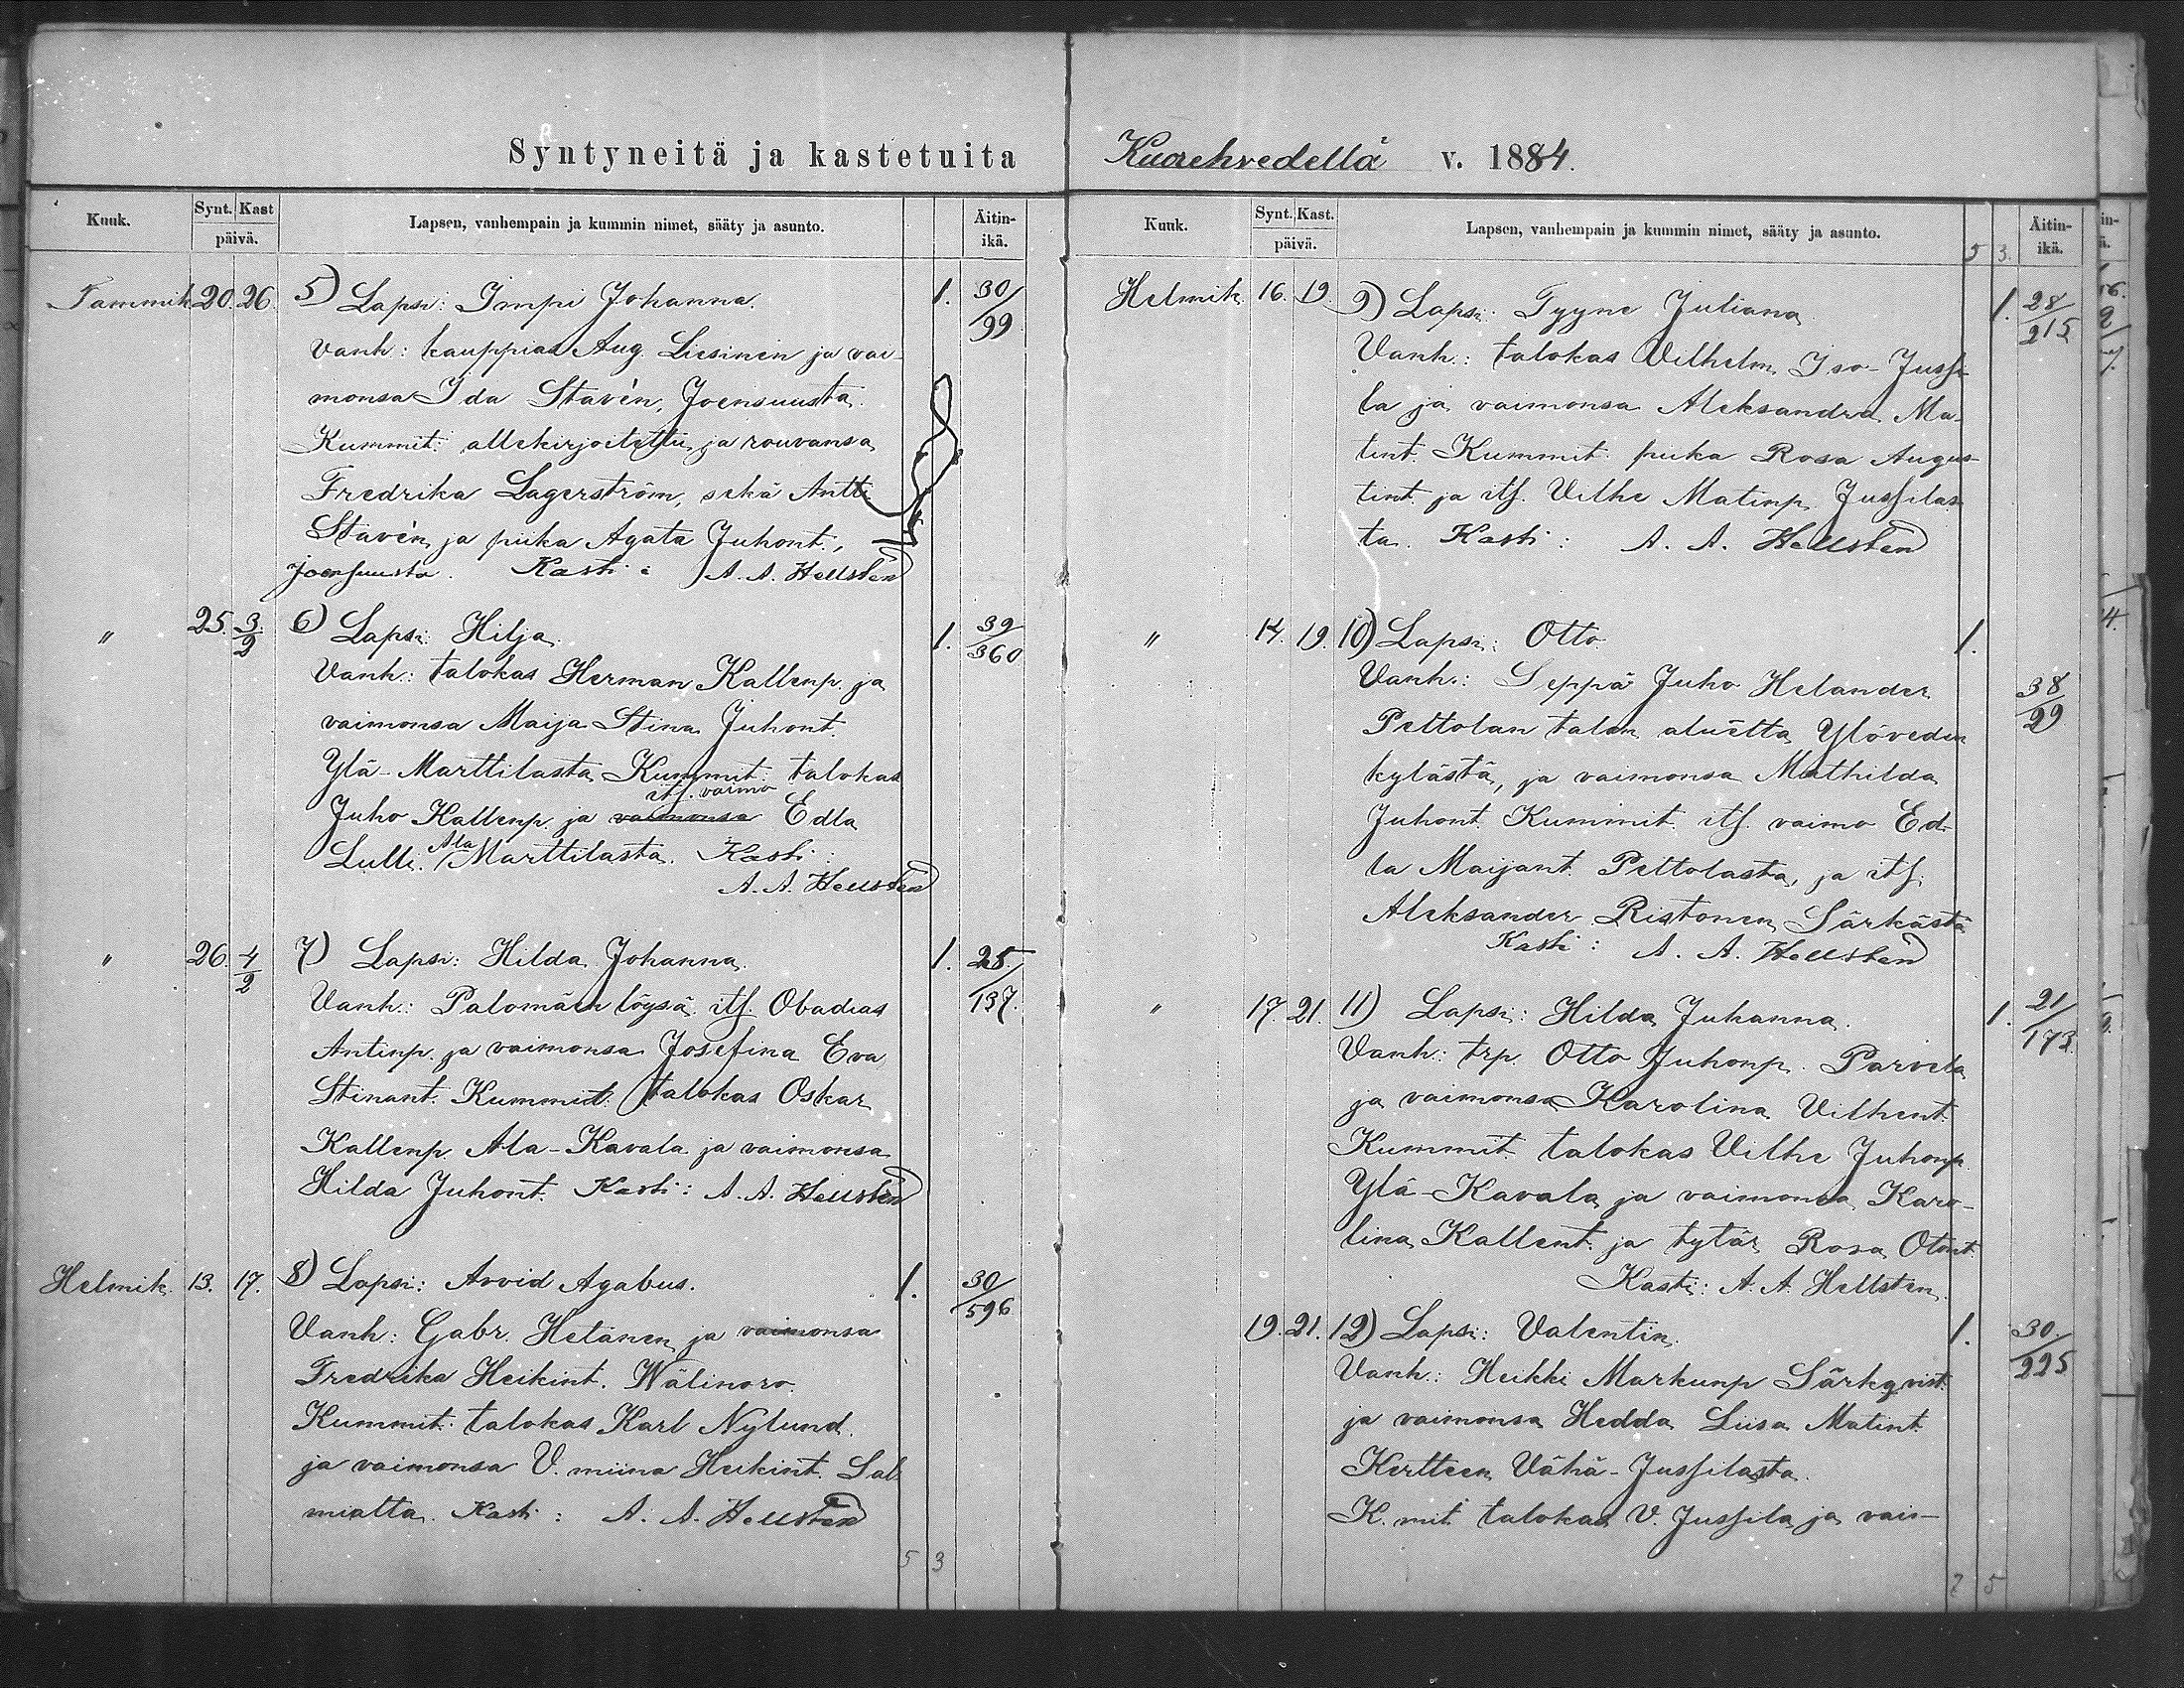 Syntyneitä ja kastetuita
Kuuk.
Synt. Kast
päivä.
Lapsen, vanhempain ja kummin nimet, sääty ja asunto.
Äitin-
ikä.
Tammik 20. 26. 5) Lapsi: Impi Johanna. 1. 30/99
Vanh: kauppias Aug. Liesinen ja vai-
monsa Ida Stavèn, Joensuusta.
Kummit: allekirjoitettu ja rouvansa
Fredrika Lagerström, sekä Antti
Stavèn ja piika Agata Juhont.,
Joensuusta. Kasti: A. A. Hellsten
" 25. 3/2 6) Lapsi: Hilja. 1. 39/360
Vanh: talokas Herman Kallenp. ja
vaimonsa Maija Stina Juhont.
Ylä-Marttilasta Kummit: talokas
itf. vaimo
Juho Kallenp. ja vaimonsa Edla
Ala
Lulli. Marttilasta. Kasti:
A. A. Hellsten
" 26. 4/2 7) Lapsi: Hilda Johanna. 1. 25/137.
Vanh: Palomäen löysä itf. Obadias
Antinp. ja vaimonsa Josefina Eva
Stinant. Kummit: talokas Oskar
Kallenp. Ala-Kavala ja vaimonsa
Hilda Juhont. Kasti: A. A. Hellsten
Helmik. 13. 17. 8) Lapsi: Arvid Agabus. 1. 30/596
Vanh: Gabr. Helänen ja vaimonsa
Fredrika Heikint. Wälinoro.
Kummit: talokas Karl Nylund
ja vaimonsa V. miina Heikint. Sal
mialta. Kasti: A. A. Hellsten
5 3
Kuorehvedellä v. 1884.
Kuuk.
Synt. Kast.
päivä.
Lapsen, vanhempain ja kummin nimet, sääty ja asunto.
5 3.
Äitin-
ikä.
Helmik. 16. 19. 9) Lapsi: Tyyne Juliana 1. 28/215
Vanh: talokas Vilhelm Iso-Jussi
la ja vaimonsa Aleksandra Ma-
tint. Kummit: piika Rosa Augus-
tint. ja itf. Vilhe Matinp. Jussilas
ta. Kasti: A. A. Hellsten
" 14. 19. 10) Lapsi: Otto. 1.
38/29
Vanh.: Seppä Juho Helander
Peltolan talon aluelta Ylöveden
kylästä, ja vaimonsa Mathilda
Juhont. Kummit. itf. vaimo Ed-
la Maijant. Peltolasta, ja itf.
Aleksander Ristonen Särkästä
Kasti: A. A. Hellsten
" 17. 21. 11) Lapsi: Hilda Juhanna. 1. 21/173.
Vanh: trp. Otto Juhonp. Parvela
ja vaimonsa Karolina Vilhent.
Kummit. talokas Vilhe Juhonp.
Ylä-Kavala ja vaimonsa Karo-
lina Kallent. ja tytär Rosa Otont.
Kasti: A. A. Hellsten.
19. 21. 12) Lapsi: Valentin. 1. 30/225
Vanh.: Heikki Markunp Särkqvist.
ja vaimonsa Hedda Liisa Matint.
Kertteen Vähä-Jussilasta.
K. mit. talokas V. Jussila ja vai-
7 5